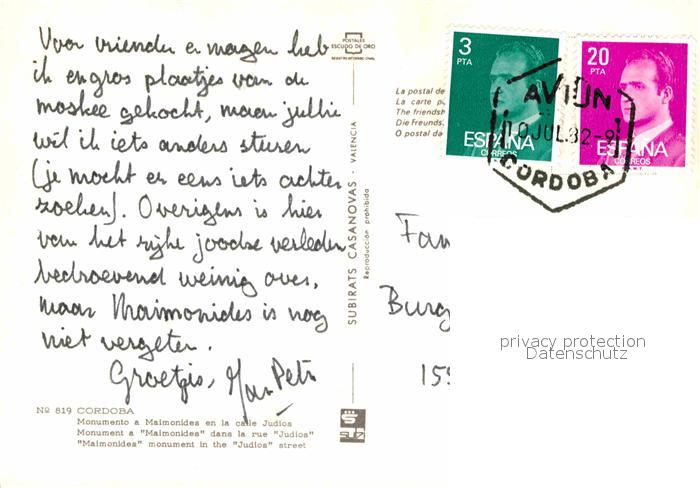 Voor vrienden en magen heb
ik en gros plaatjes van de
moskee gekocht, maar jullie
wil ik iets anders sturen
(je mocht er eens iets achter
zoeken). Overigens is hier
van het rijke joodse verleden
bedroevend weinig over,
maar Maimonides is nog
niet vergeten.
Groetjes,
Nº 819 CORDOBA
Monumento a Maimonides en la calle Judios
Monument a "Maimonides" dans la rue "Judios"
"Maimonides" monument in the "Judios" street
POSTALES
ESCUDO DE ORO
SUBIRATS CASANOVAS · VALENCIA
Reproducción prohibida
La postal de
La carte po
The friendsh
Die Freunds.
O postal da
3
PTA
ESPAÑA
CORREOS
20
PTA
ESPAÑA
CORREOS
AVION
10 JUL 82-9
CORDOBA
Fam
Burg
159
privacy protection
Datenschutz